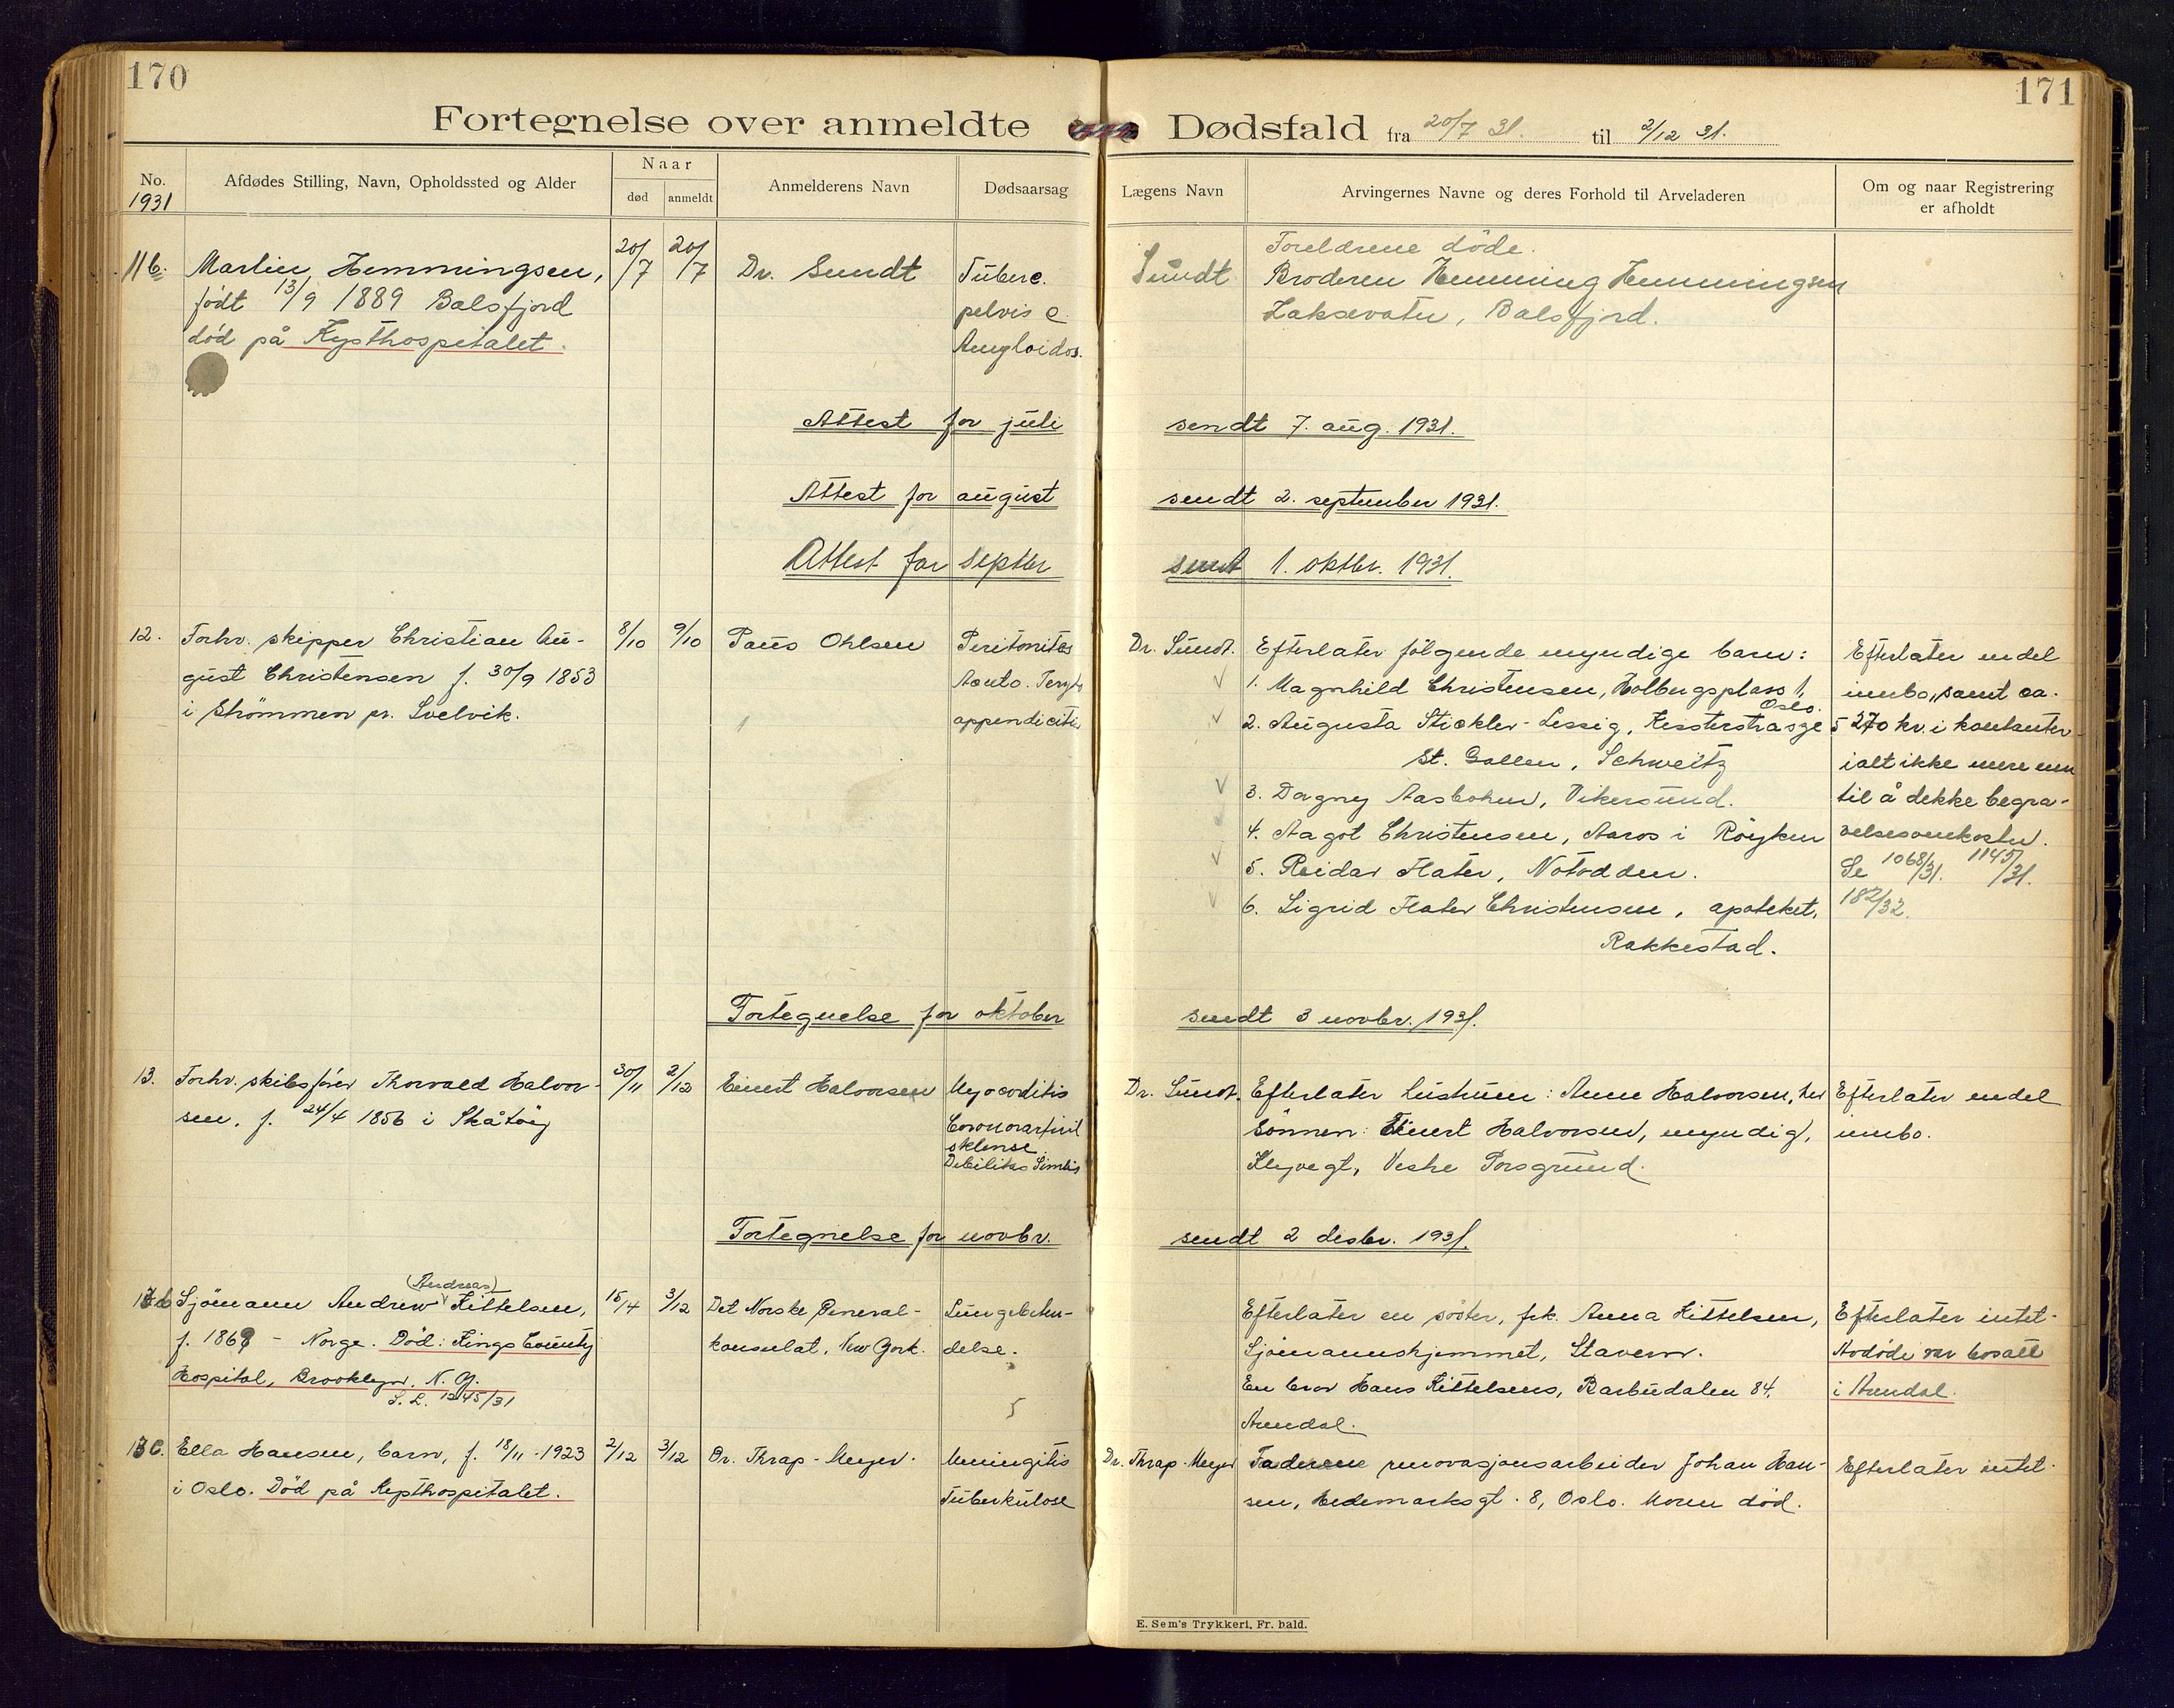 170
171
Fortegnelse over anmeldte Dødsfald fra 20/7 31. til 2/12 31.
No.
1931
Afdødes Stilling, Navn, Opholdssted og Alder
Naar
død
anmeldt
Anmelderens Navn
Dødsaarsag
Lægens Navn
Arvingernes Navne og deres Forhold til Arveladeren
Om og naar Registrering
er afholdt
11b. Martin Hemmingsen,
født 13/9 1889 Balsfjord
død på Kysthospitalet.
20/7
20/7
Dr. Sundt
Tuberc.
pelvis c.
Amyloidos.
Sundt
Foreldrene døde.
Broderen Hemming Hemmingsen
Laksevatn, Balsfjord.
Attest for juli sendt 7. aug. 1931.
Attest for august sendt 2. september 1931.
Attest for septbr sendt 1. oktbr. 1931.
12. Forhv. skipper Christian Au-
gust Christensen f. 30/9 1853
i Strömmen pr. Svelvik.
8/10
9/10
Paus Ohlsen
Peritonitis
appendicitis
Dr. Sundt.
Efterlater følgende myndige barn:
1. Magnhild Christensen, Holbergsplass 1,
Oslo.
2. Augusta Stickler-Lessig, Kesslerstrasse 5
St. Gallen, Schweitz
3. Dagny Aasbohen, Vikersund.
4. Aagot Christensen, Aaros i Röyken
5. Reidar Flater, Notodden.
6. Sigrid Flater Christensen, apoteket,
Rakkestad.
Efterlater endel
innbo, samt ca.
270 kr. i kontanter
ialt ikke mere enn
til å dekke begra-
velsesomkostn.
Se 1068/31. 1145/31.
182/32.
Fortegnelse for oktober sendt 3 novbr. 1931.
13. Forhv. skibsfører Thorvald Halvor-
sen, f. 24/4 1856 i Skåtöy
30/11
2/12
Einert Halvorsen
Myocoditis
Coronorarteril
sklerose
Debilitas Senilis
Dr. Sundt.
Efterlater hustruen: Anne Halvorsen, her
Sönnen: Einert Halvorsen, myndig,
Klyvegt, Vestre Porsgrund.
Efterlater endel
innbo.
Fortegnelse for novbr. sendt 2 desbr. 1931.
(Andreas)
13b Sjömann Andrew Kittelsen,
f. 1868 - Norge. Död: Kings County
Hospital, Brooklyn, N. Y.
S. L. 1245/31
15/4
3/12
Det Norske General-
konsulat, New York.
Lungebeten-
delse.
Efterlater en söster, frk. Anna Kittelsen,
Sjömannshjemmet, Stavern.
En bror Hans Kittelsens, Barbudalen 84,
Arendal.
Efterlater intet.
Avdöde var bosatt
i Arendal.
13c. Ella Hansen, barn, f. 18/11-1923
i Oslo. Död på Kysthospitalet.
2/12
3/12
Dr. Thrap-Meyer.
Meningitis
Tuberkulose
Dr. Thrap-Meyer
Faderen renovasjonsarbeider Johan Han-
sen, Hedemarksgt. 8, Oslo. Moren död.
Efterlater intet.
E. Sem's Trykkeri, Fr. hald.